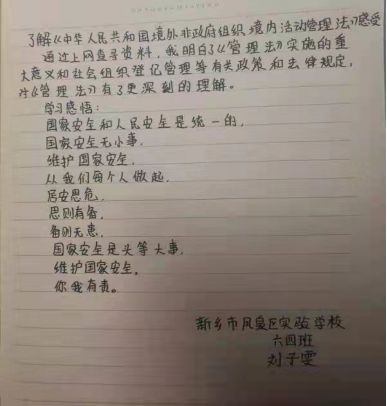 了解《中华人民共和国境外非政府组织境内活动管理法》感受
通过上网查寻资料，我明白了《管理法》实施的重
大意义和社会组织登记管理等有关政策和法律规定，
对《管理法》有了更深刻的理解。
学习感悟：
国家安全和人民安全是统一的，
国家安全无小事，
维护国家安全，
从我们每个人做起，
居安思危，
思则有备，
备则无患，
国家安全是头等大事，
维护国家安全，
你我有责。
新乡市凤泉区实验学校
六四班
刘子雯